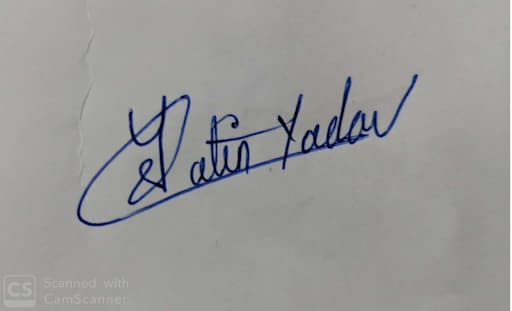 Yadav
CS Scanned with
CamScanner